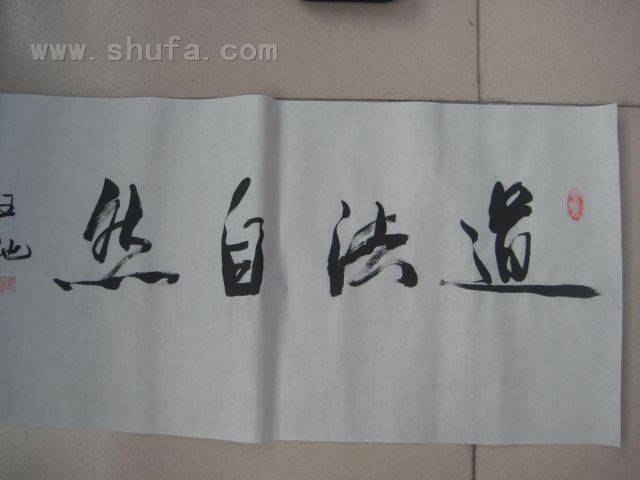 www.shufa.com
道法自然